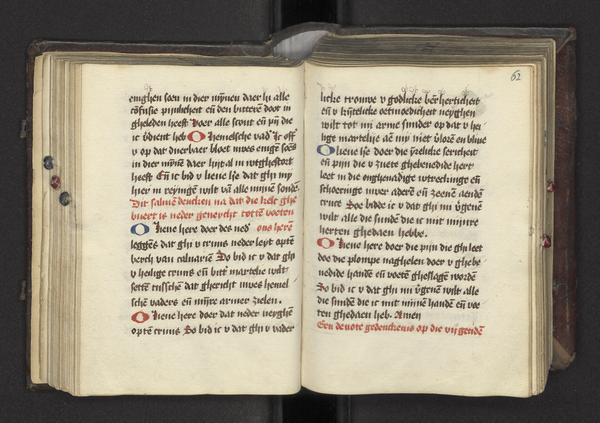 enighen soen in dier mȳnen daer hi alle
cōfusie pijnlicheit eñ den bitterē doot in
gheleden heeft Voer alle scout eñ pijn die
ic v̄dient heb O hemelsche vad' Ic off
v op dat duerbaer bloet uwes enigē soēs
in dier mȳnē daer hijt al in wtghestort
heeft Eñ ic bid v lieue hē dat ghi my
hier in reynigē wilt vā alle mijnē sondē
Dit salmē dencken na dat die kelt ghe
buert is neder geneycht tottē voeten
O here doer des ned' ons herē
leggēs dat ghi v cruus neder leyt optē
berch van caluariē So bid ic v dat ghi
v heilige cruus eñ bittē martelie wilt
settē tusschē dat ghericht uwes hemel
sche vaders eñ mijnre armer zielen.
O lieue here doer dat neder neyghen
optē cruus So bid ic v dat ghi v vader
62
licke trouwe v godlicke bērherticheit
eñ v kȳtelicke oetmoedicheit neyghen
wilt tot mi arme sunder op dat v hei
lige martelie aē my niet v̄lorē en bliue
O lieue hē doer die
eñ pijn die v zuete ghebenedide hert
leet in die onghenadige wtreckinge eñ
schoeringe uwer aderē eñ zeenē aendē
cruce Soe bidic ic v dat ghi mi v̄geuē
wilt alle die sundē die ic mit mijnre
herten ghedaen hebbe.
O lieue here doer die pijn die ghi leet
doe die plompe naghelen doer v ghebe
nedide handē eñ voetē gheslagē wordē
So bid ic v dat ghi mi v̄geuē wilt alle
die sundē die ic mit mijnē handē eñ voe
ten ghedaen heb. Amen
Een deuote gedenckenis op die vrijgendē